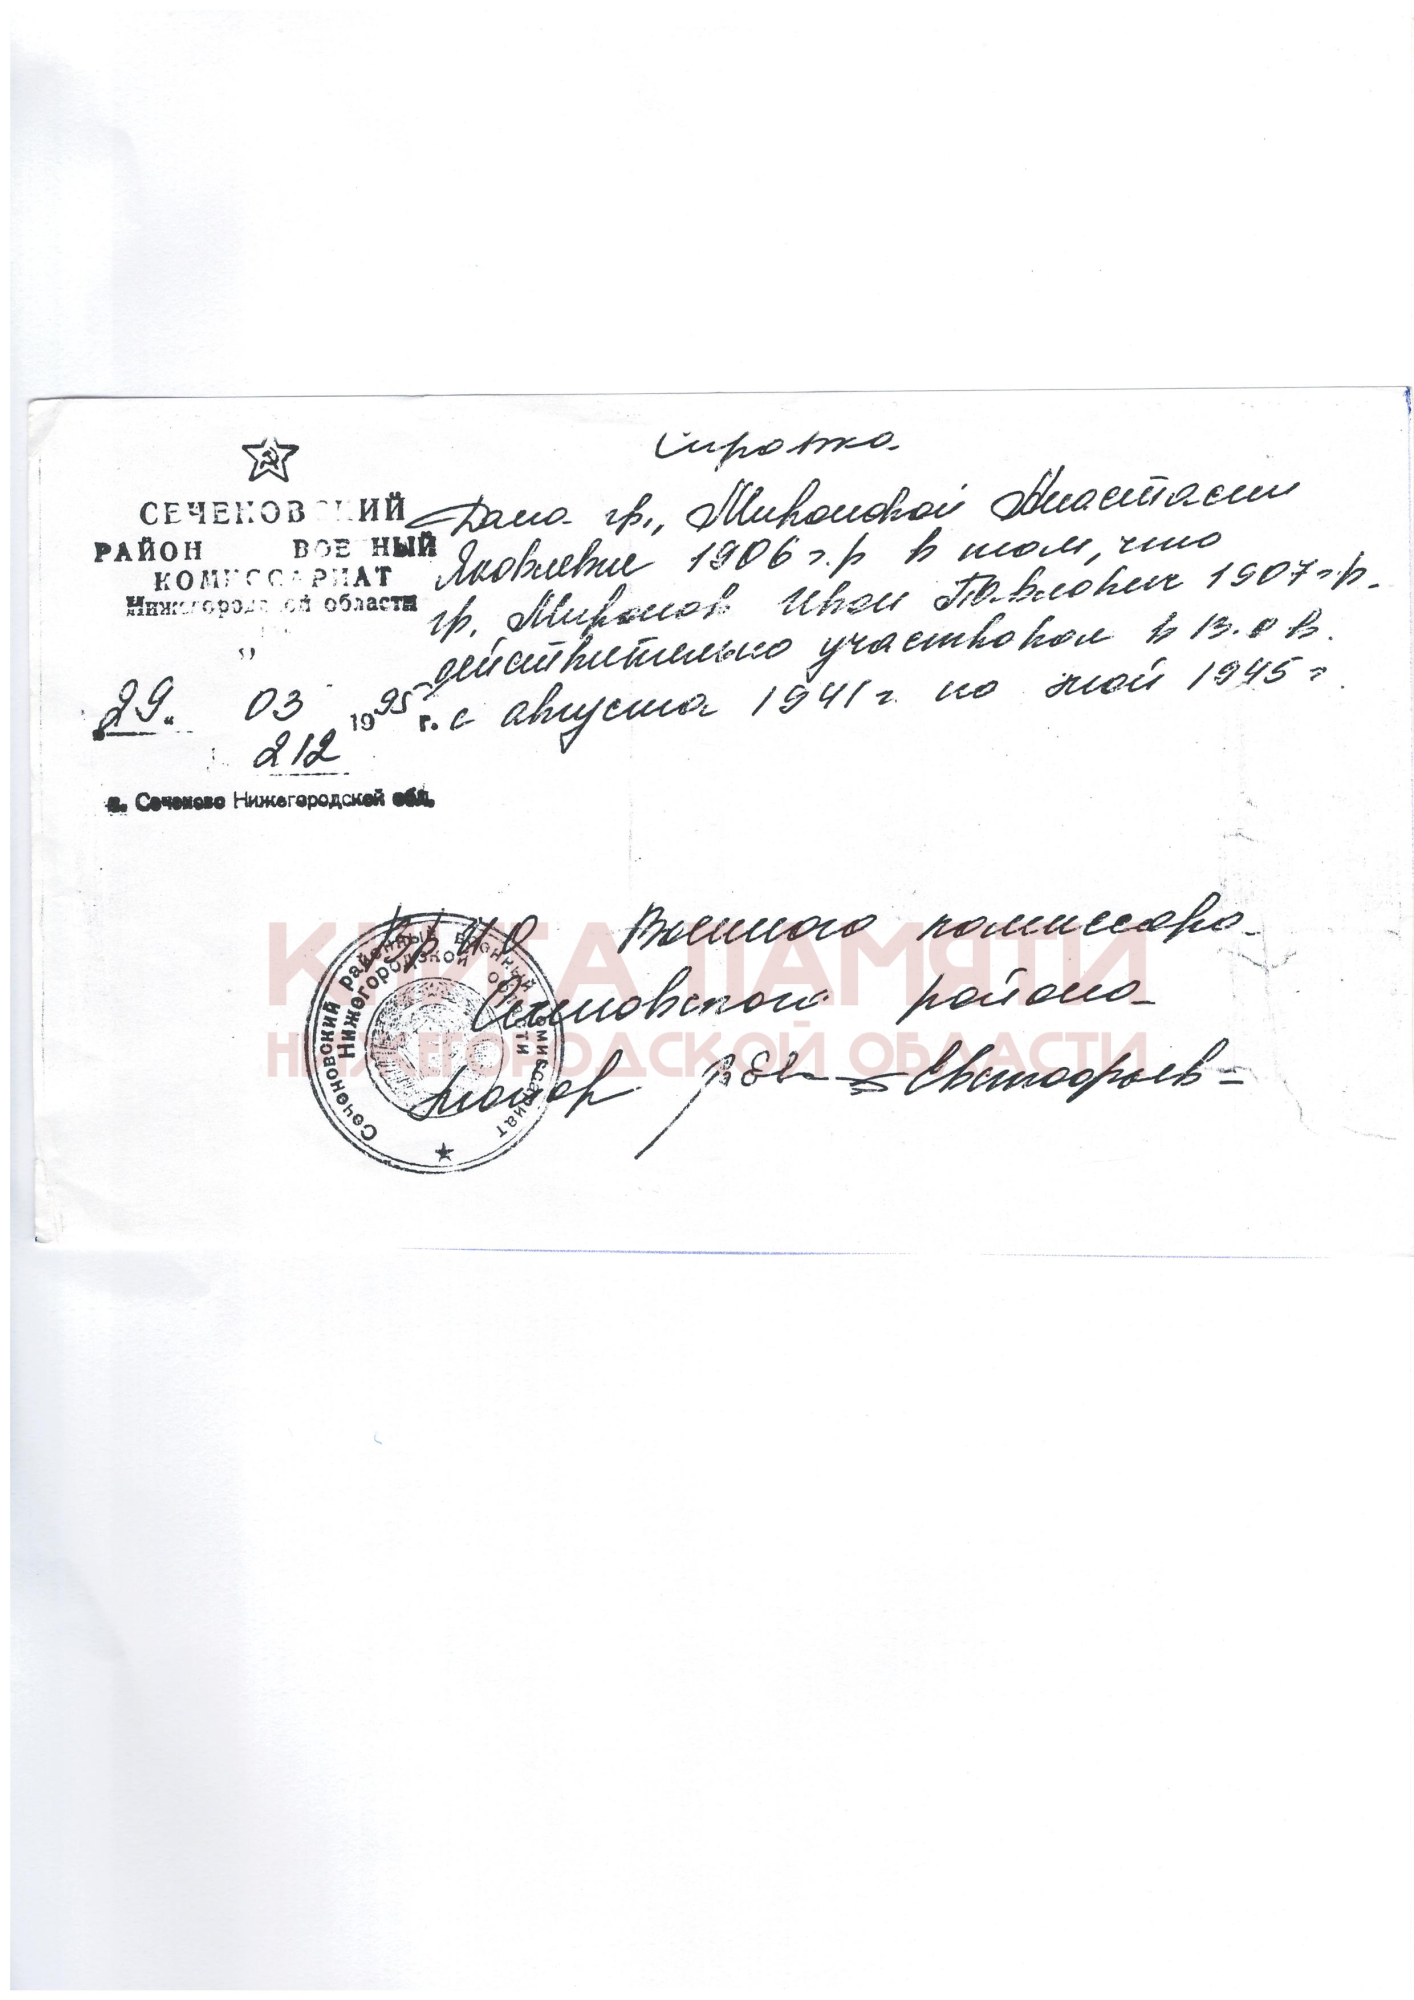 Справка
СЕЧЕНОВСКИЙ
РАЙОН ВОЕННЫЙ
КОМИССАРИАТ
Нижегородской области
"
29 " 03 1995 г.
212
п. Сеченово Нижегородской обл.
Дана гр., Анастасии
Яковлевне 1906 г.р в том, что
гр. Миронов Иван Павлович 1907 г.р.
действительно участвовал в В.О В.
с августа 1941 г. по май 1945 г.
ВрИО Военного комиссара
Сеченовского района
майор Евстафьев
Сеченовский районный военный комиссариат
Нижегородской области
КНИГА ПАМЯТИ
НИЖЕГОРОДСКОЙ ОБЛАСТИ